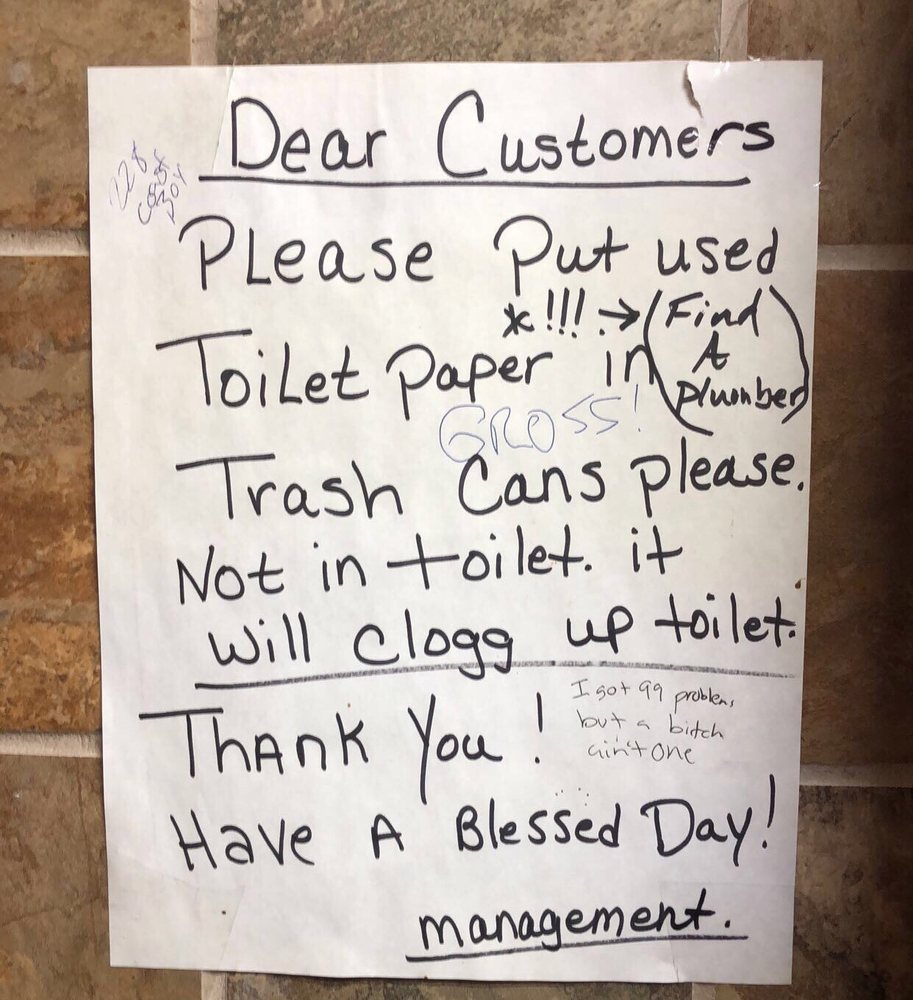 Dear Customers
228
COAST
BOY
PLease Put used
*!!! → (Find
A
Plumber)
ToiLet paper in
GROSS!
Trash Cans please.
Not in toilet. it
will clogg up toilet.
I got 99 problems
but a bitch
ain't one
ThANK You!
Have A Blessed Day!
management.